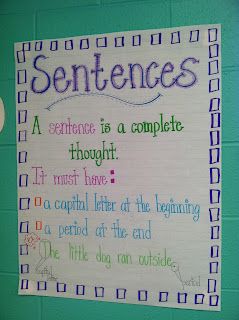 Sentences
A sentence is a complete
thought.
It must have:
a capital letter at the beginning
a period at the end
The little dog ran outside.
period